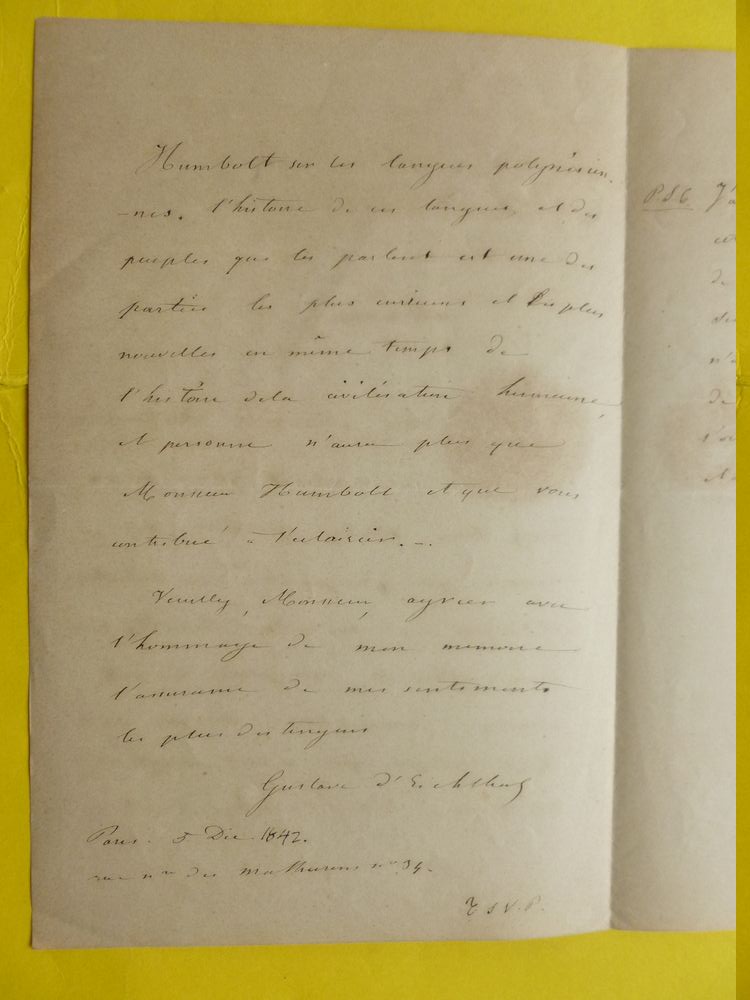 Humbolt sur les langues polynésien-
-nes. l'histoire de ces langues, et des
peuples qui les parlent est une des
parties les plus curieuses et les plus
nouvelles en même temps de
l'histoire de la civilisation humaine,
et personne n'aura plus que
Monsieur Humbolt et que vous
contribué à l'éclaircir. —
Veuillez, Monsieur, agréer avec
l'hommage de mon mémoire
l'assurance de mes sentiments
les plus distingués
Gustave d'Eichthal
Paris. 5 Dec 1842.
rue nve des mathurins no 34.
T S V. P.
P.S.